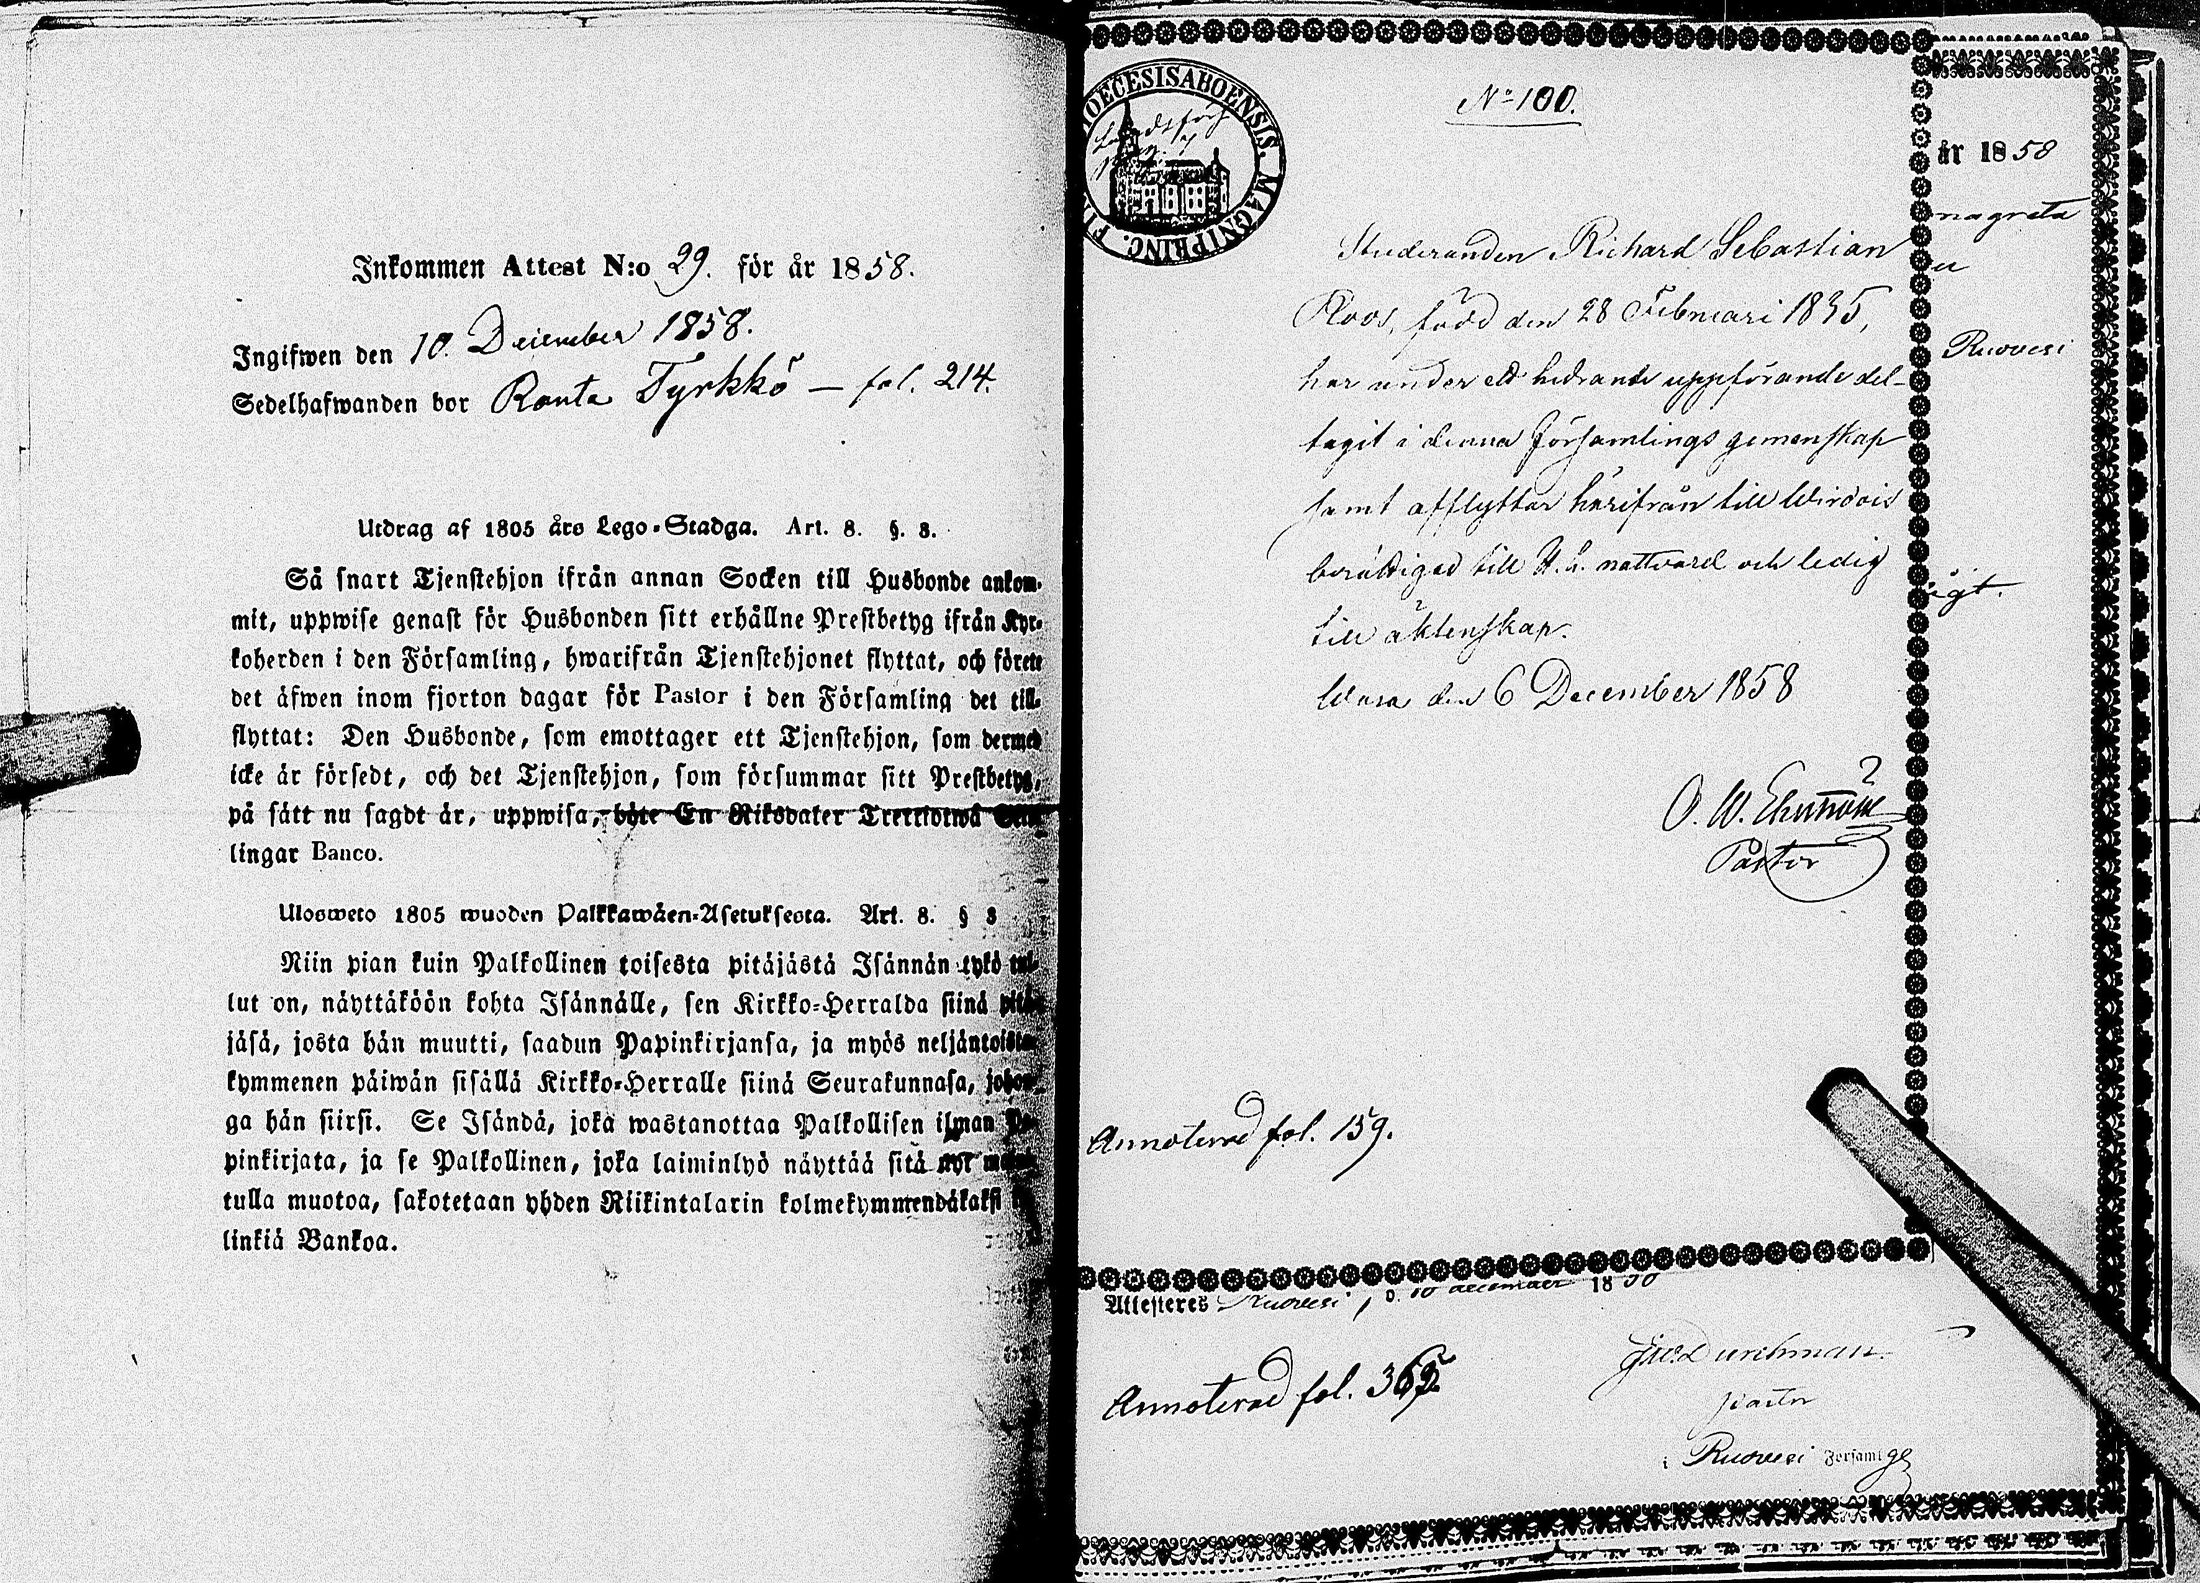 Inkommen Attest N:o 29. för år 1858.
Ingifwen den 10. December 1858.
Sedelhafwanden bor Ranta Tyrkkö — fol. 214.
Utdrag af 1805 års Lego-Stadga. Art. 8. §. 3.
Så snart Tjenstehjon ifrån annan Socken till Husbonde ankom-
mit, uppwise genast för Husbonden sitt erhållne Prestbetyg ifrån Kyr-
koherden i den Församling, hwarifrån Tjenstehjonet flyttat, och förete
det äfwen inom fjorton dagar för Pastor i den Församling det till-
flyttat: Den Husbonde, som emottager ett Tjenstehjon, som dermed
icke är försedt, och det Tjenstehjon, som försummar sitt Prestbetyg,
på sätt nu sagdt är, uppwisa, böte En Riksdaler Trettiotwå Skil-
lingar Banco.
Ulosweto 1805 wuoden Palkkawäen-Asetuksesta. Art. 8. § 3
Niin pian kuin Palkollinen toisesta pitäjästä Isännän tykö tul-
lut on, näyttäköön kohta Isännälle, sen Kirkko-Herralda siinä pitä-
jäsä, josta hän muutti, saadun Papinkirjansa, ja myös neljäntoista-
kymmenen päiwän sisällä Kirkko-Herralle siinä Seurakunnasa, johon-
ga hän siirsi. Se Isändä, joka wastanottaa Palkollisen ilman Pa-
pinkirjata, ja se Palkollinen, joka laiminlyö näyttää sitä nyt
tulla muotoa, sakotetaan yhden Riikintalarin kolmekymmendäkaksi
linkiä Bankoa.
DIOECESIS ABOENSIS. MAGNI PRINC. FIN
No 100.
Studeranden Richard Sebastian
Roos, född den 28 Februari 1835,
har under ett hedrande uppförande del-
tagit i denna församlings gemenskap
samt afflyttar härifrån till Wirdois
berättigad till H. h. nattvard och ledig
till äktenskap.
Wasa den 6 December 1858
O. W.
Pastor
Annoterad fol. 159.
år 1858
nagreta
Ruovesi
igt.
Attesteres Ruovesi, d. 10 december 1858
Durchman.
pastor
i Ruovesi Församlge
Annoterad fol.